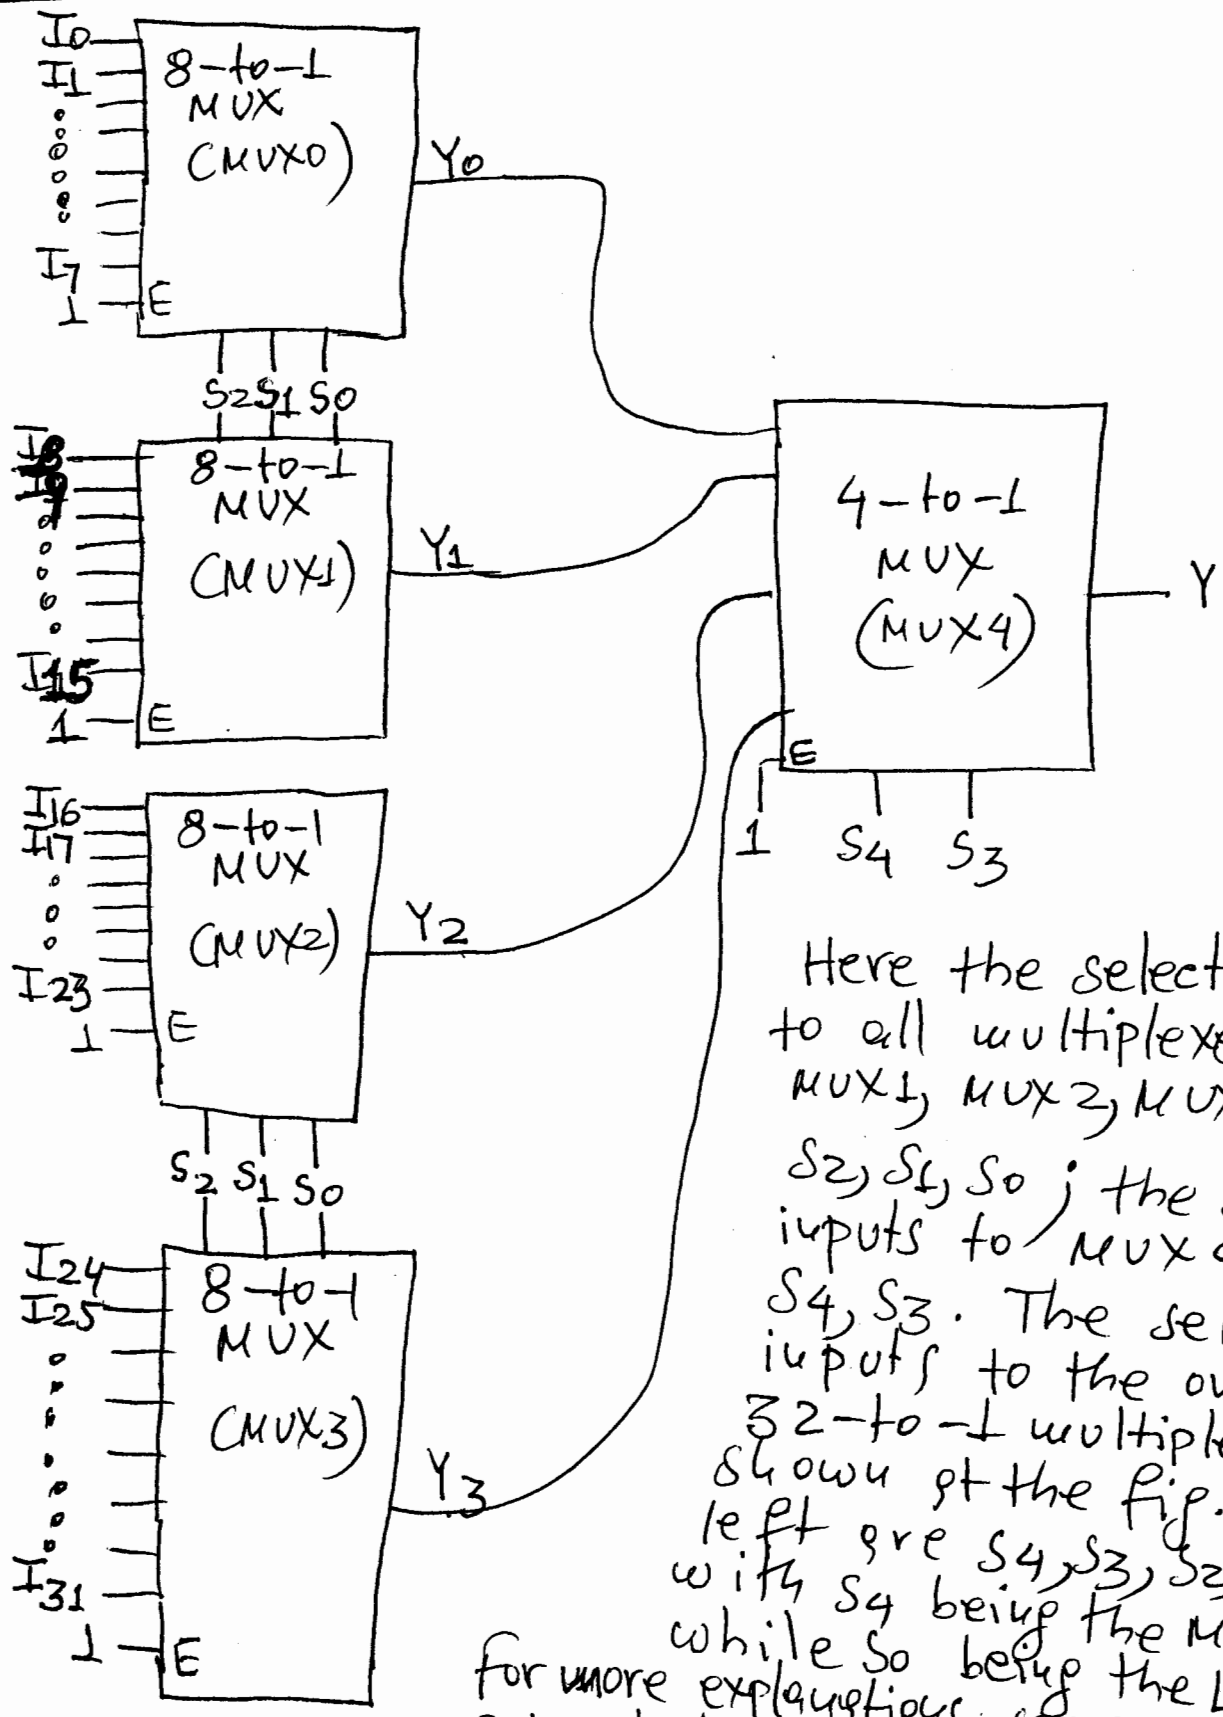 I0
I1
I7
1
8-to-1
MUX
(MUX0)
E
Y0
S2 S1 S0
I8
I9
I15
1
8-to-1
MUX
(MUX1)
E
Y1
I16
I17
I23
1
8-to-1
MUX
(MUX2)
E
Y2
S2 S1 S0
I24
I25
I31
1
8-to-1
MUX
(MUX3)
E
Y3
4-to-1
MUX
(MUX4)
E
Y
1 S4 S3
Here the select
to all
MUX1, MUX2,
S2, S1, S0 ; the
inputs to MUX
S4, S3. The
inputs to the
32-to-1
shown at the fig.
left are S4, S3, S2,
with S4 being the
while S0 being the
for more explanations